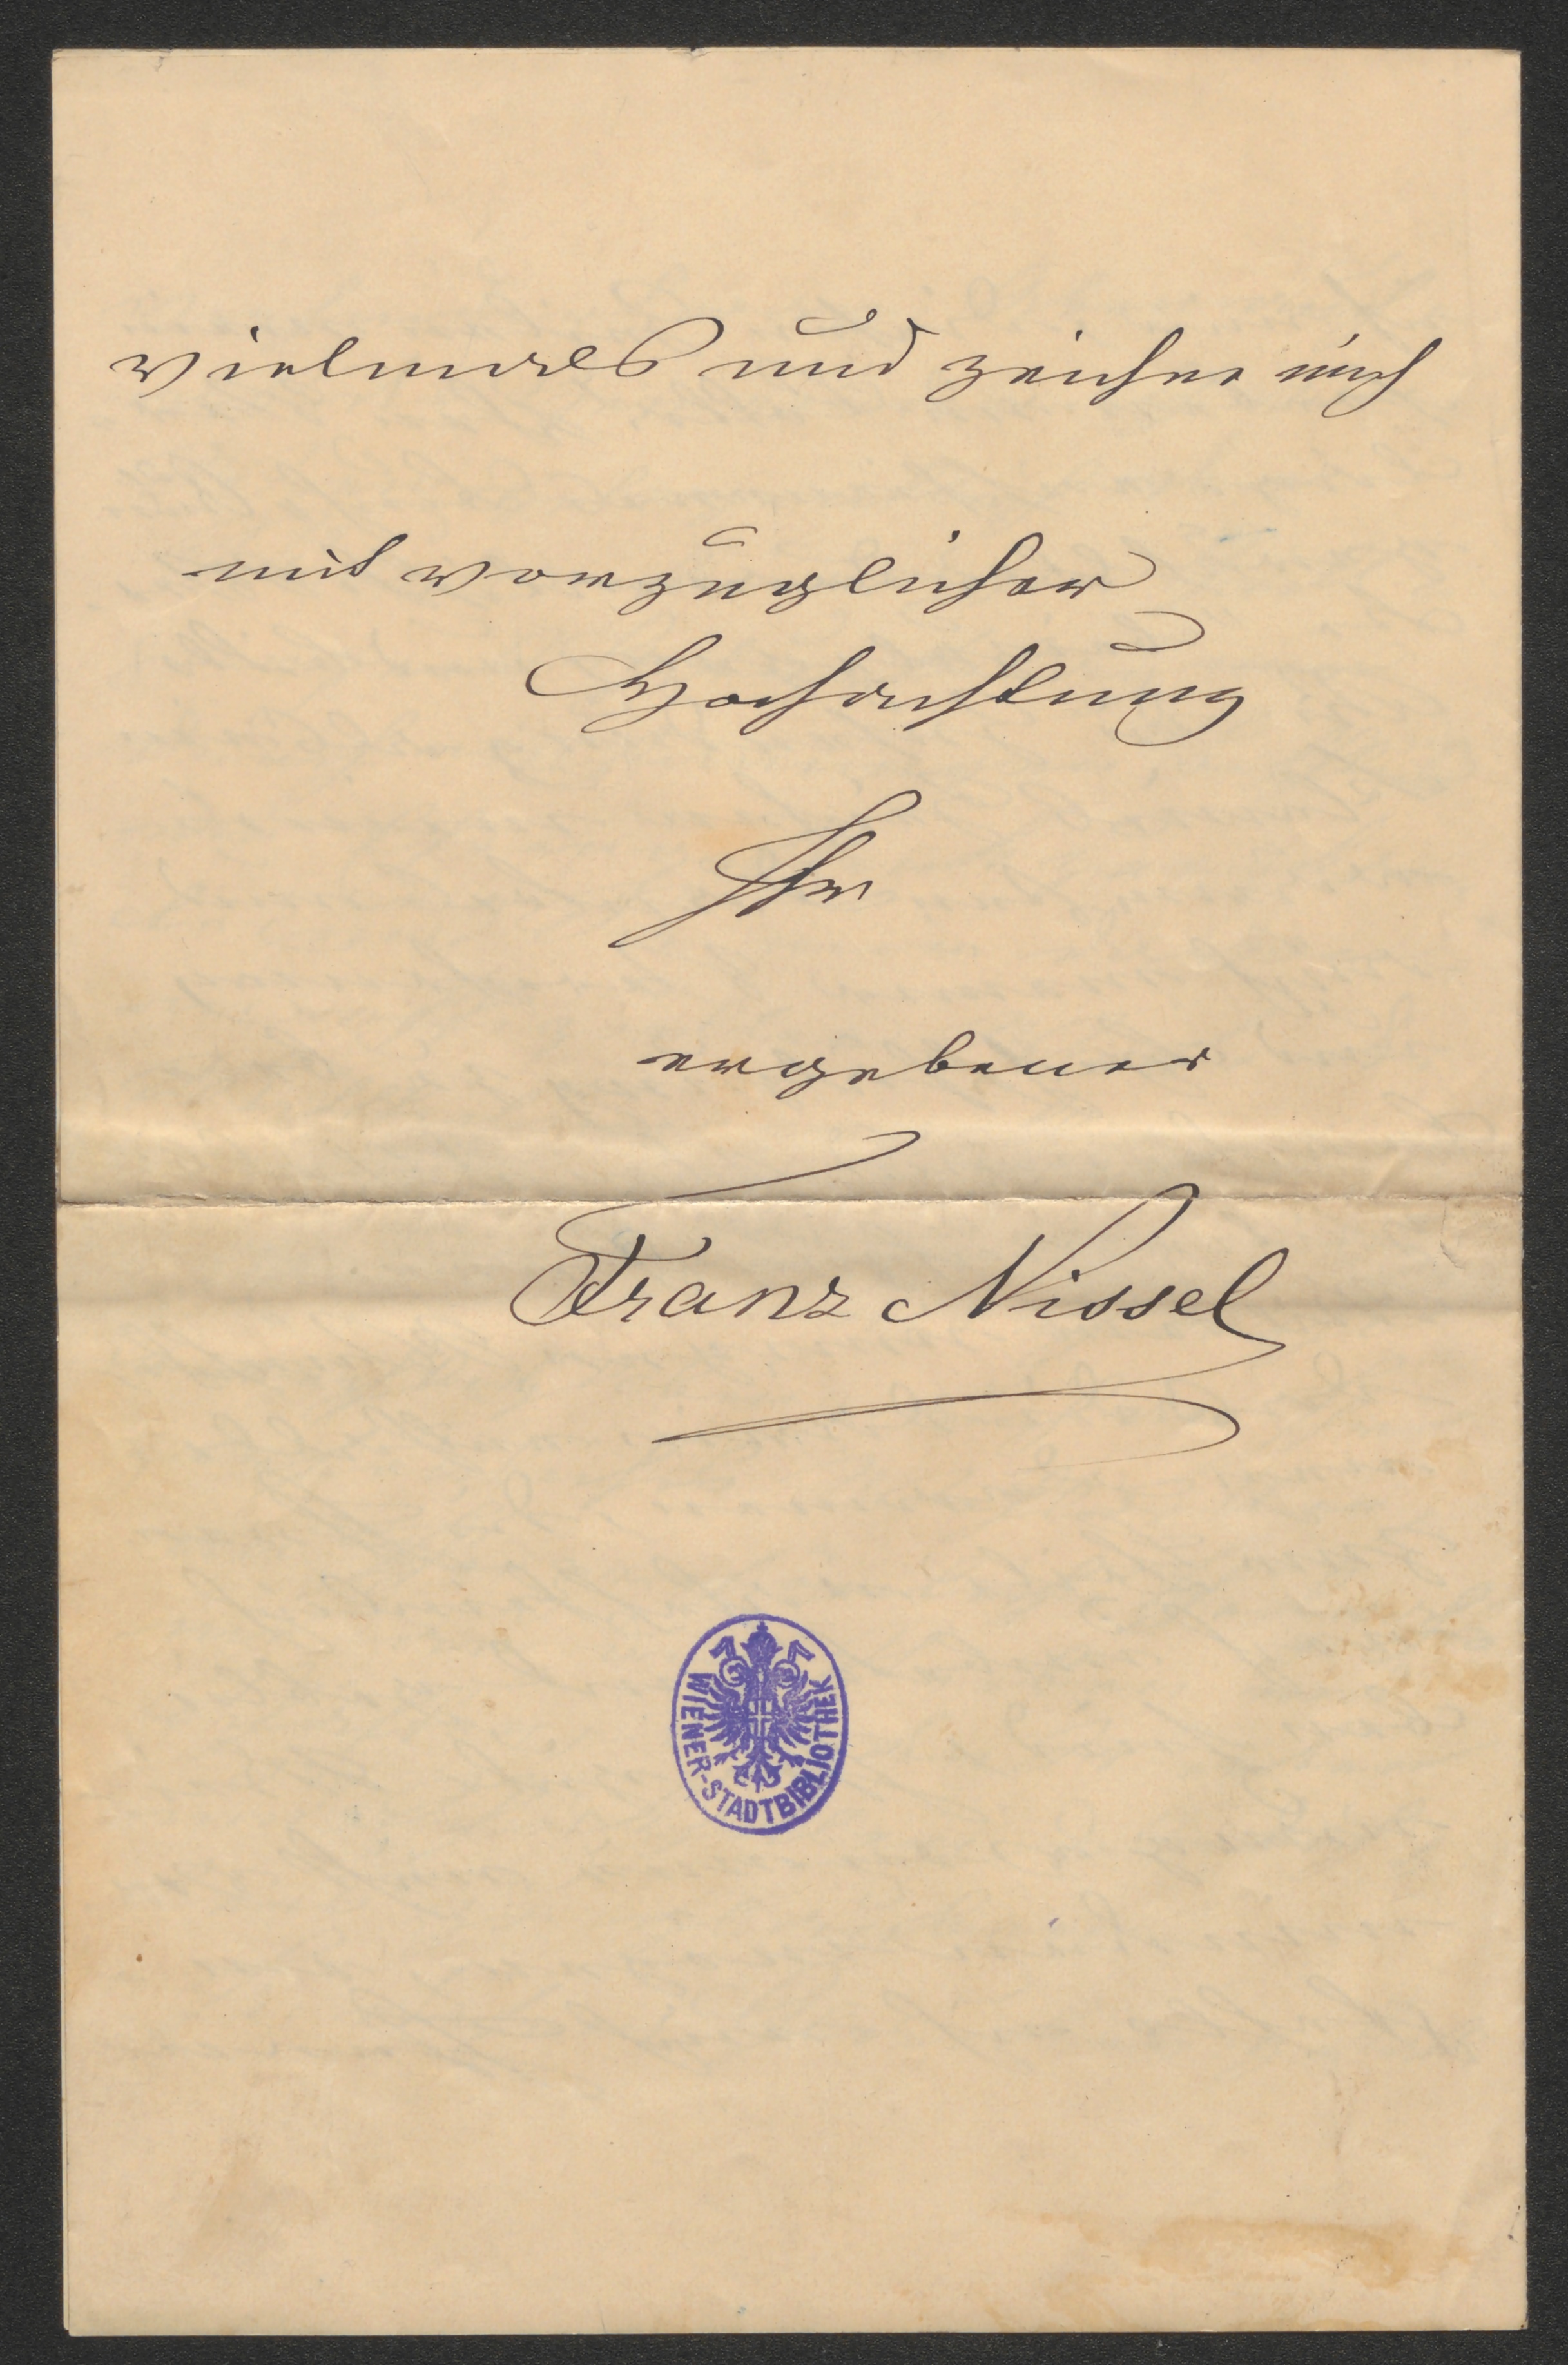 vielmals und zeichne mich
mit vorzüglicher
Hochachtung
Ihr
ergebener
Franz Nissel
WIENER-STADTBIBLIOTHEK